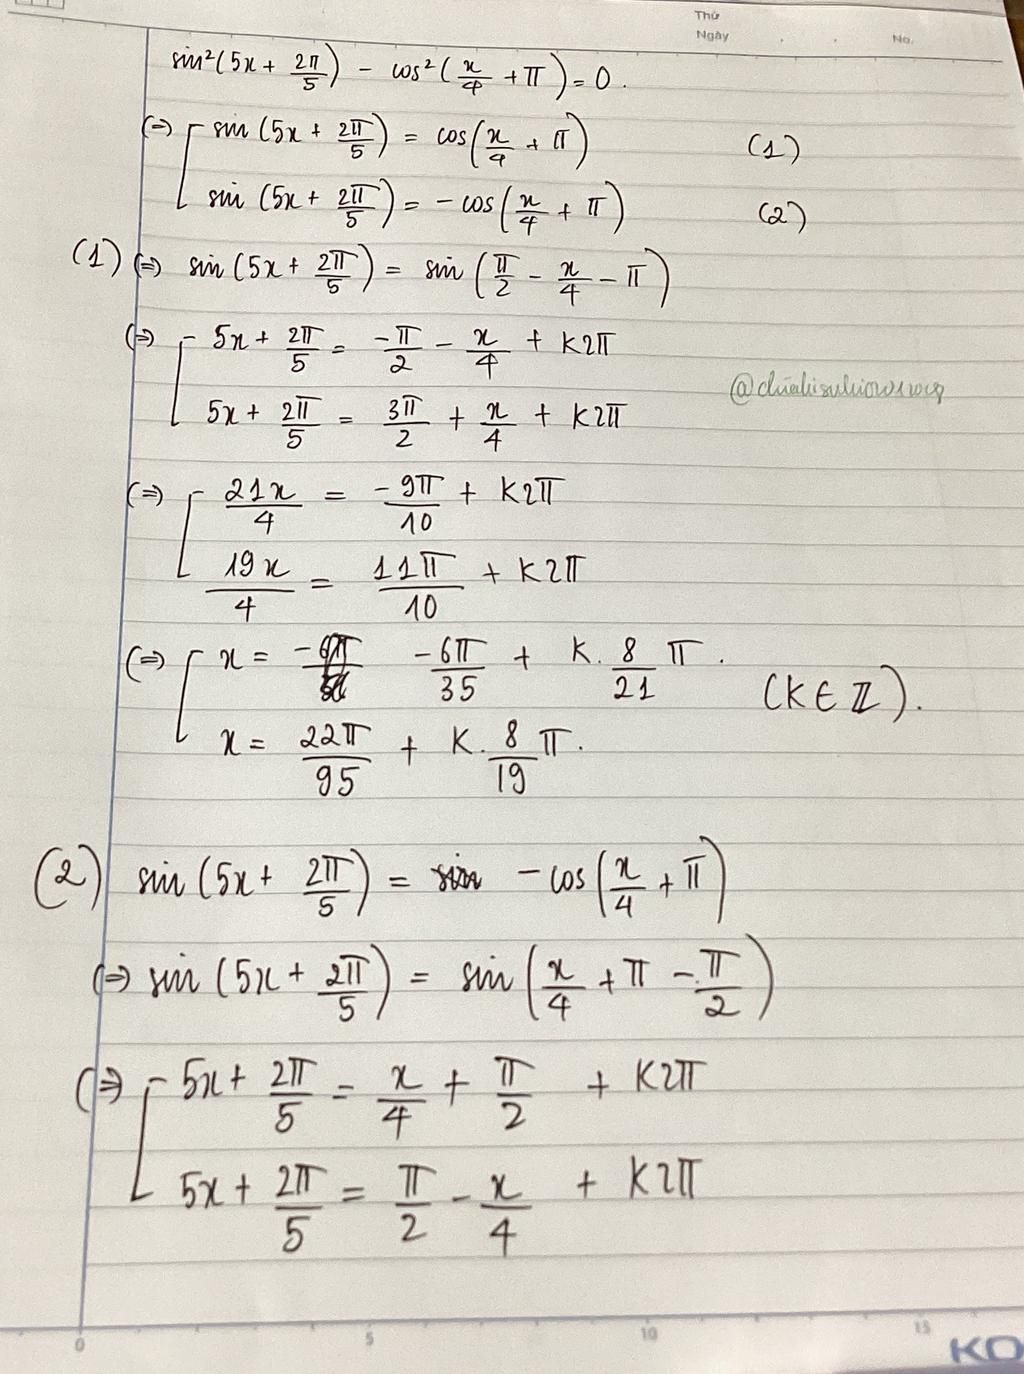 Thứ
Ngày . . . No.
sin²(5x + 2π/5) - cos²(x/4 + π) = 0.
(=) [ sin(5x + 2π/5) = cos(x/4 + π) (1)
sin(5x + 2π/5) = -cos(x/4 + π) (2)
(1) (=) sin(5x + 2π/5) = sin(π/2 - x/4 - π)
(=) [ 5x + 2π/5 = -π/2 - x/4 + K2π
5x + 2π/5 = 3π/2 + x/4 + K2π
(=) [ 21x/4 = -9π/10 + K2π
19x/4 = 11π/10 + K2π
(=) [ x = -6π/35 + K. 8/21 π.
(K ∈ ℤ).
x = 22π/95 + K. 8/19 π.
(2) sin(5x + 2π/5) = -cos(x/4 + π)
(=) sin(5x + 2π/5) = sin(x/4 + π - π/2)
(=) [ 5x + 2π/5 = x/4 + π/2 + K2π
5x + 2π/5 = π/2 - x/4 + K2π
0 5 10 15
KO